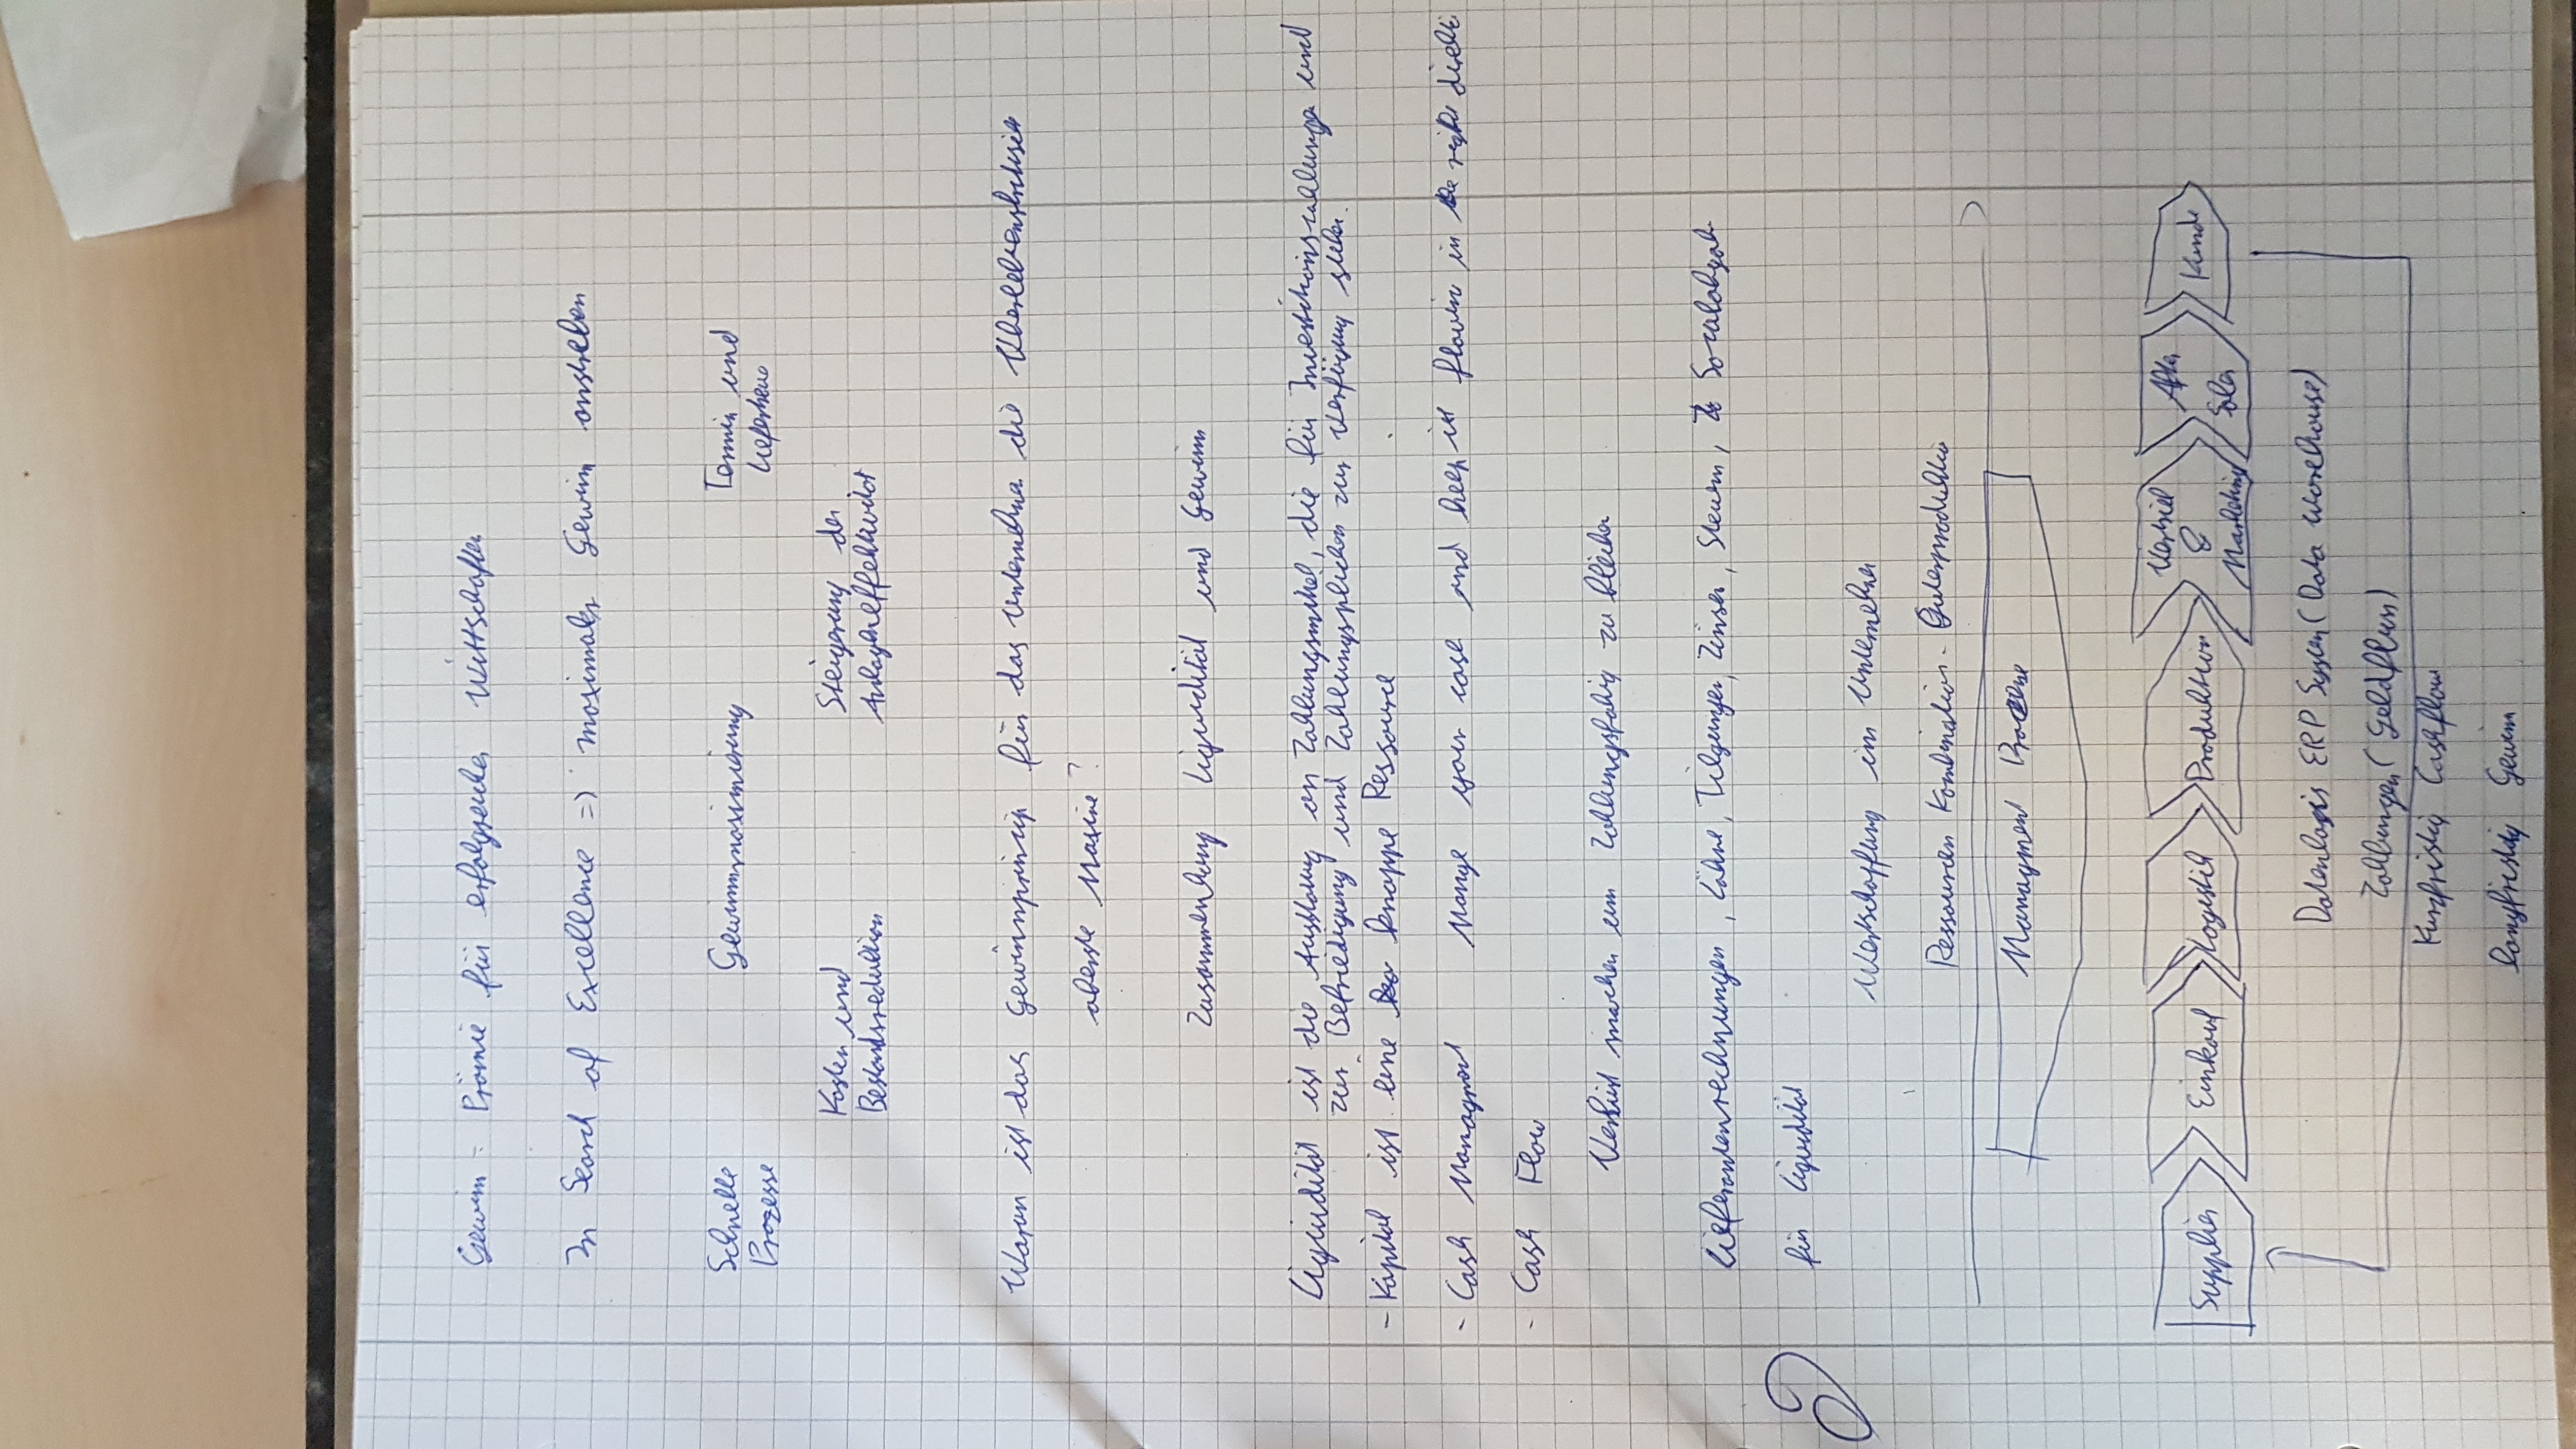 Gewinn = Prämie für erfolgreiches Wirtschaften
In Search of Excellence => maximalen Gewinn anstreben
Schnelle Gewinnmaximierung Termin und
Prozesse Liefertreue
Kosten und Steigerung der
Bestandsreduktion Anlageneffektivität
Warum ist das Gewinnprinzip für das Unternehmen die
oberste Maxime?
Zusammenhang Liquidität und Gewinn
Liquidität ist die Ausstattung an Zahlungsmittel, die für Investitionszahlungen und
zur Befriedigung und Zahlungspflichten zur Verfügung stehen.
- Kapital ist eine knappe Ressource
- Cash Managment Mange your cash and keep it flowin in the right direkti
- Cash Flow
Verlust machen um Zahlungsfähig zu bleiben
Lieferantenrechnungen, Löhne, Tilgungen, Zinsen, Steuern, Sozialabgabe
für Liquidität
Wertschöpfung im Unternehmen
Ressourcen Kombination - Güterproduktion
Managment Prozesse
Supplier Einkauf Logistik Produktion Vertrieb & Marketing After Sales Kunde
Datenbasis ERP System (Data Warehouse)
Zahlungen (Geldfluss)
Kurzfristig Cashflow
langfristig Gewinn